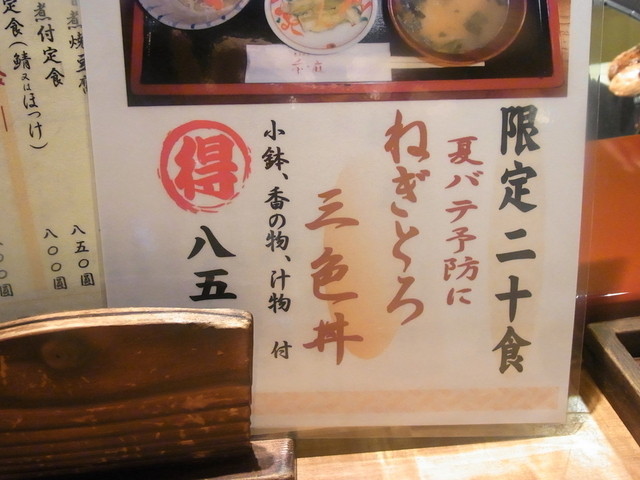 限定二十食
夏バテ予防に
ねぎとろ
三色丼
小鉢、香の物、汁物 付
得
八五
煮付定食
定食(鯖又はほっけ)
八五〇圓
八〇〇圓